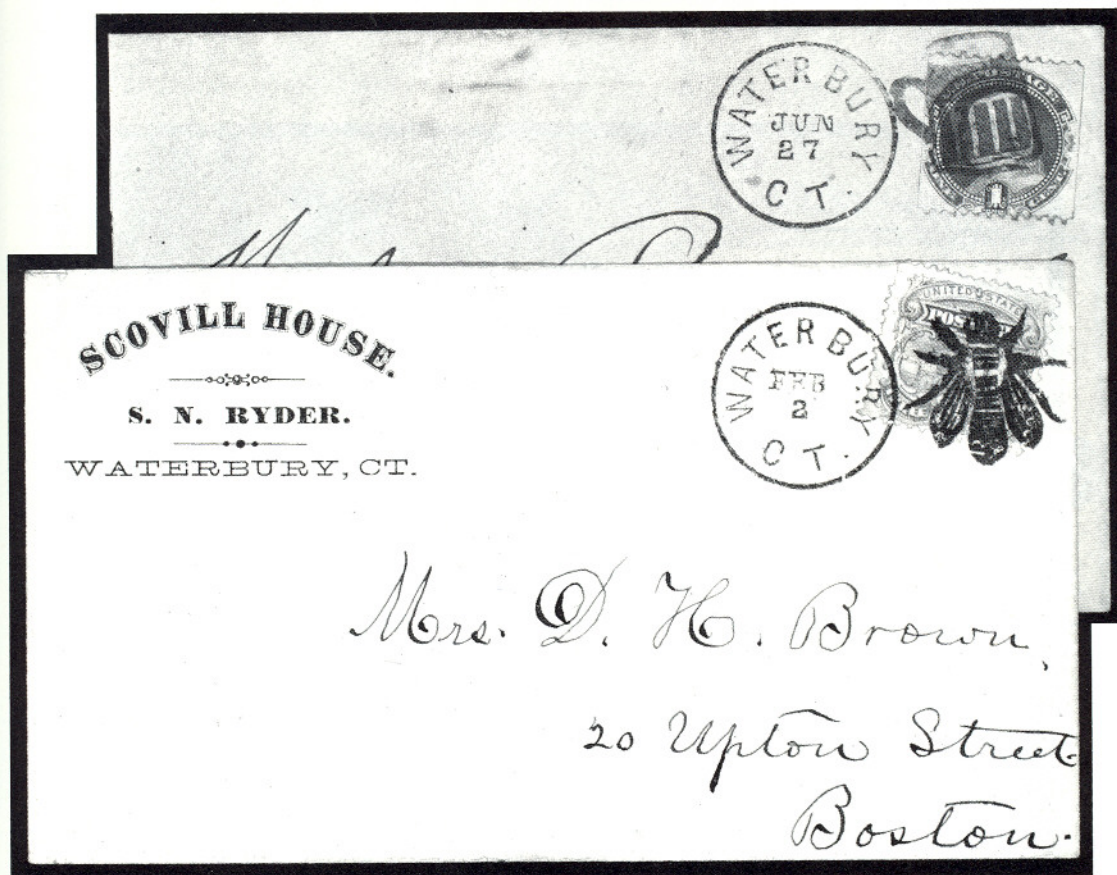 WATERBURY
JUN
27
CT.
SCOVILL HOUSE.
S. N. RYDER.
WATERBURY, CT.
WATERBURY
FEB
2
CT.
UNITED STATES
Mrs. D. H. Brown,
20 Upton Street
Boston.